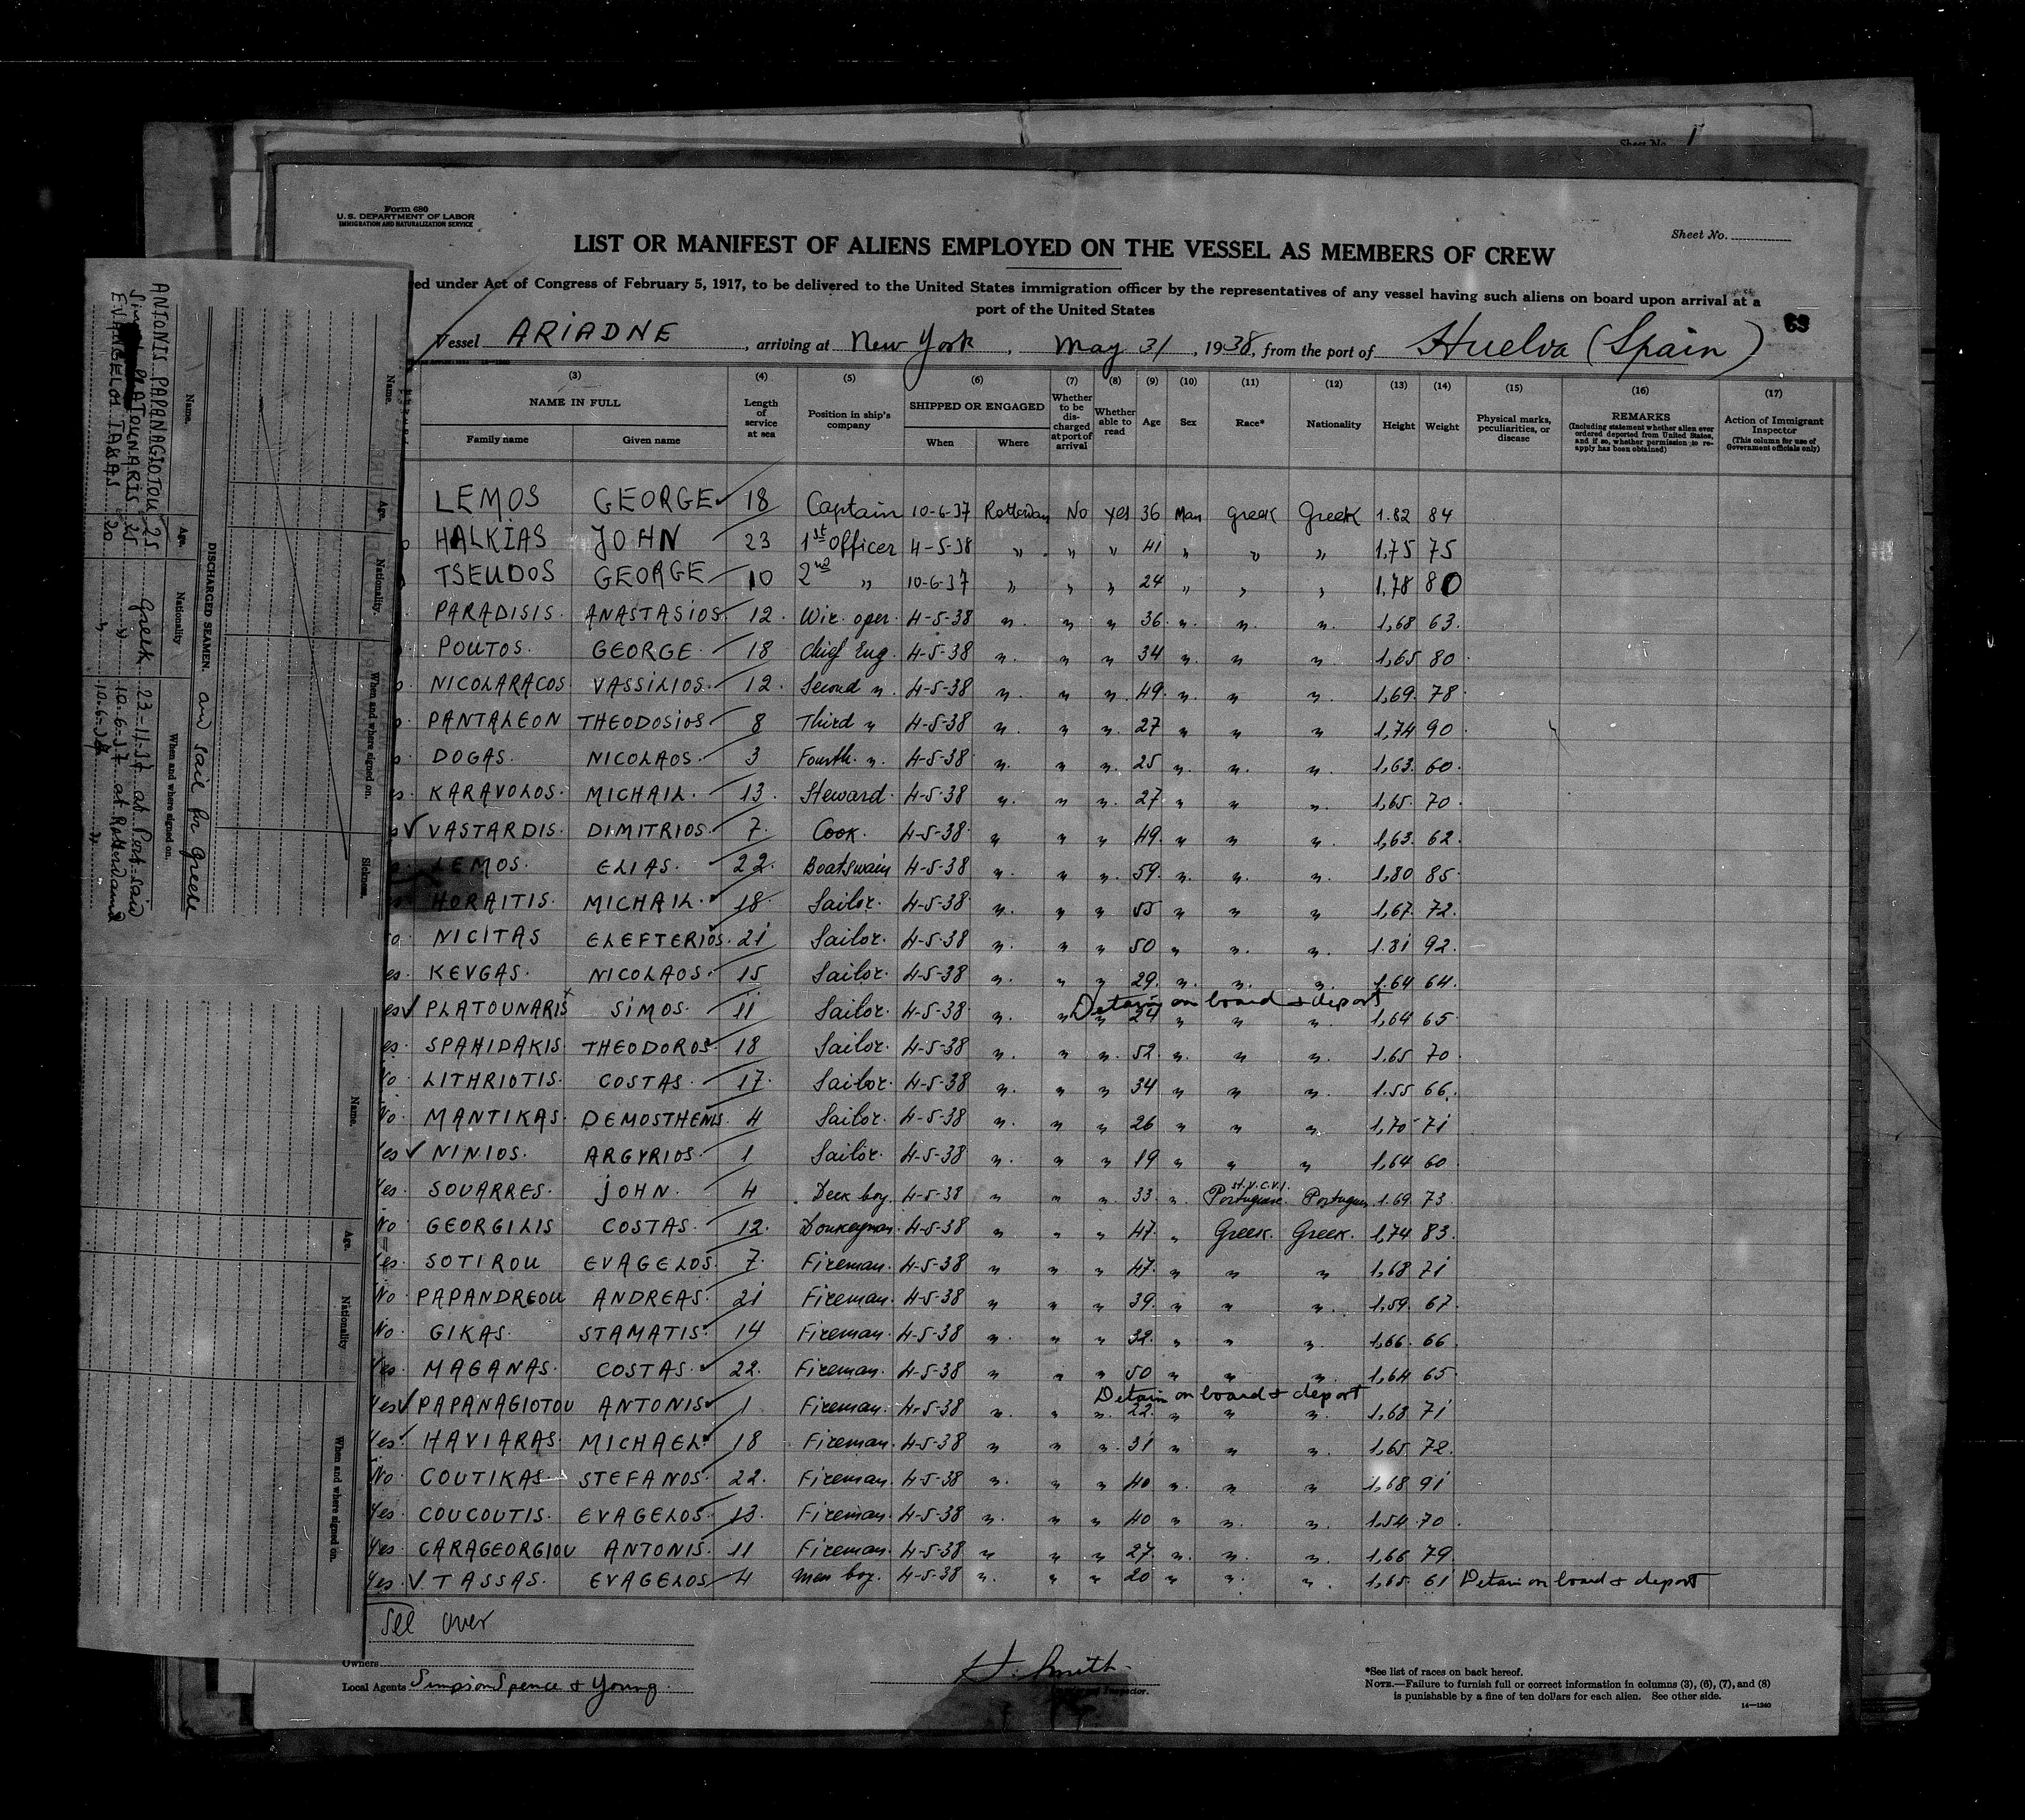 Sheet No. 1
Form 680
U. S. DEPARTMENT OF LABOR
IMMIGRATION AND NATURALIZATION SERVICE
Sheet No.
LIST OR MANIFEST OF ALIENS EMPLOYED ON THE VESSEL AS MEMBERS OF CREW
ed under Act of Congress of February 5, 1917, to be delivered to the United States immigration officer by the representatives of any vessel having such aliens on board upon arrival at a
port of the United States
63
Vessel ARIADNE, arriving at New York, May 31, 1938, from the port of Huelva (Spain)
(3) (4) (5) (6) (7) (8) (9) (10) (11) (12) (13) (14) (15) (16) (17)
NAME IN FULL
Family name Given name
Length of service at sea
Position in ship's company
SHIPPED OR ENGAGED
When Where
Whether to be discharged at port of arrival
Whether able to read
Age Sex Race* Nationality Height Weight
Physical marks, peculiarities, or disease
REMARKS
(Including statement whether alien ever ordered deported from United States, and if so, whether permission to re-apply has been obtained)
Action of Immigrant Inspector
(This column for use of Government officials only)
LEMOS GEORGE 18 Captain 10-6-37 Rotterdam No yes 36 Man Greek Greek 1.82 84
HALKIAS JOHN 23 1st Officer 4-5-38 " " " 41 " " " 1,75 75
TSEUDOS GEORGE 10 2nd " 10-6-37 " " " 24 " " " 1,78 80
PARADISIS. ANASTASIOS. 12. Wir. oper. 4-5-38 " " " 36. " " " 1,68 63.
POUTOS. GEORGE. 18 Chief Eng. 4-5-38 " " " 34 " " " 1,65 80.
NICOLARACOS. VASSILIOS. 12. Second ". 4-5-38 " " " 49. " " " 1,69. 78.
PANTALEON THEODOSIOS 8 Third " 4-5-38 " " " 27 " " " 1,74 90.
DOGAS. NICOLAOS. 3 Fourth. ". 4-5-38 " " " 25 " " " 1,63. 60.
KARAVOLOS. MICHAIL. 13. Steward. 4-5-38 " " " 27 " " " 1,65. 70.
VASTARDIS. DIMITRIOS. 7. Cook. 4-5-38 " " " 49. " " " 1,63. 62.
LEMOS. ELIAS. 22. Boatswain 4-5-38 " " " 59. " " " 1,80 85.
HORAITIS. MICHAIL. 18. Sailor. 4-5-38 " " " 55 " " " 1,67. 72.
NICITAS ELEFTERIOS. 21 Sailor. 4-5-38 " " " 50 " " " 1.81 92.
KEVGAS. NICOLAOS. 15 Sailor. 4-5-38 " " " 29. " " " 1.64 64.
Detain on board & deport
PLATOUNARIS SIMOS. 11 Sailor. 4-5-38 " " " 24 " " " 1,64 65.
SPAHIDAKIS THEODOROS 18 Sailor. 4-5-38 " " " 52. " " " 1.65 70.
No. LITHRIOTIS. COSTAS. 17. Sailor. 4-5-38 " " " 34 " " " 1.55 66.
No. MANTIKAS. DEMOSTHENIS. 4 Sailor. 4-5-38 " " " 26 " " " 1,70 71
Yes NINIOS. ARGYRIOS. 1 Sailor. 4-5-38 " " " 19 " " " 1,64 60.
Yes. SOUARRES. JOHN. 4 Deck boy. 4-5-38 " " " 33 " St.V.C.V.I. Portuguese. Portugues 1.69 73
No GEORGILIS COSTAS. 12. Donkeyman. 4-5-38 " " " 47. " Greek. Greek. 1,74 83.
Yes. SOTIROU EVAGELOS. 7. Fireman. 4-5-38 " " " 47. " " " 1,68 71
No PAPANDREOU ANDREAS. 21 Fireman. 4-5-38 " " " 39. " " " 1,59. 67.
No. GIKAS. STAMATIS. 14 Fireman. 4-5-38 " " " 32. " " " 1,66. 66
Yes. MAGANAS. COSTAS. 22. Fireman. 4-5-38 " " " 50 " " " 1,64 65.
Detain on board & deport
Yes PAPANAGIOTOU ANTONIS 1 Fireman. 4-5-38 " " " 22. " " " 1,68 71
Yes. HAVIARAS. MICHAEL. 18 Fireman. 4-5-38 " " " 31 " " " 1,65. 72.
No. COUTIKAS STEFANOS. 22. Fireman. 4-5-38 " " " 40 " " " 1,68 91
Yes COUCOUTIS. EVAGELOS 13. Fireman. 4-5-38 " " " 40 " " " 1.54 70.
Yes. CARAGEORGIOU ANTONIS. 11 Fireman. 4-5-38 " " " 27. " " " 1,66 79.
Yes. TASSAS. EVAGELOS 4 Mess boy. 4-5-38 " " " 20 " " " 1,65. 61 Detain on board & deport
See over
Owners
Local Agents Simpson Spence & Young.
H. Smith
Inspector.
*See list of races on back hereof.
NOTE.—Failure to furnish full or correct information in columns (3), (6), (7), and (8)
is punishable by a fine of ten dollars for each alien. See other side.
14—1240
DISCHARGED SEAMEN. and sail for Greece
Name. Age. Nationality When and where signed on.
ANTONIS PAPANAGIOTOU 25 Greek 23-11-37 at Port-Said
PLATOUNARIS 25 " 10-6-37 at Rotterdam
EVANGELOS TASSAS 20 " 10-6-37 "
Name. Age. Nationality. When and where signed on. Sickness.
Name. Age. Nationality When and where signed on.